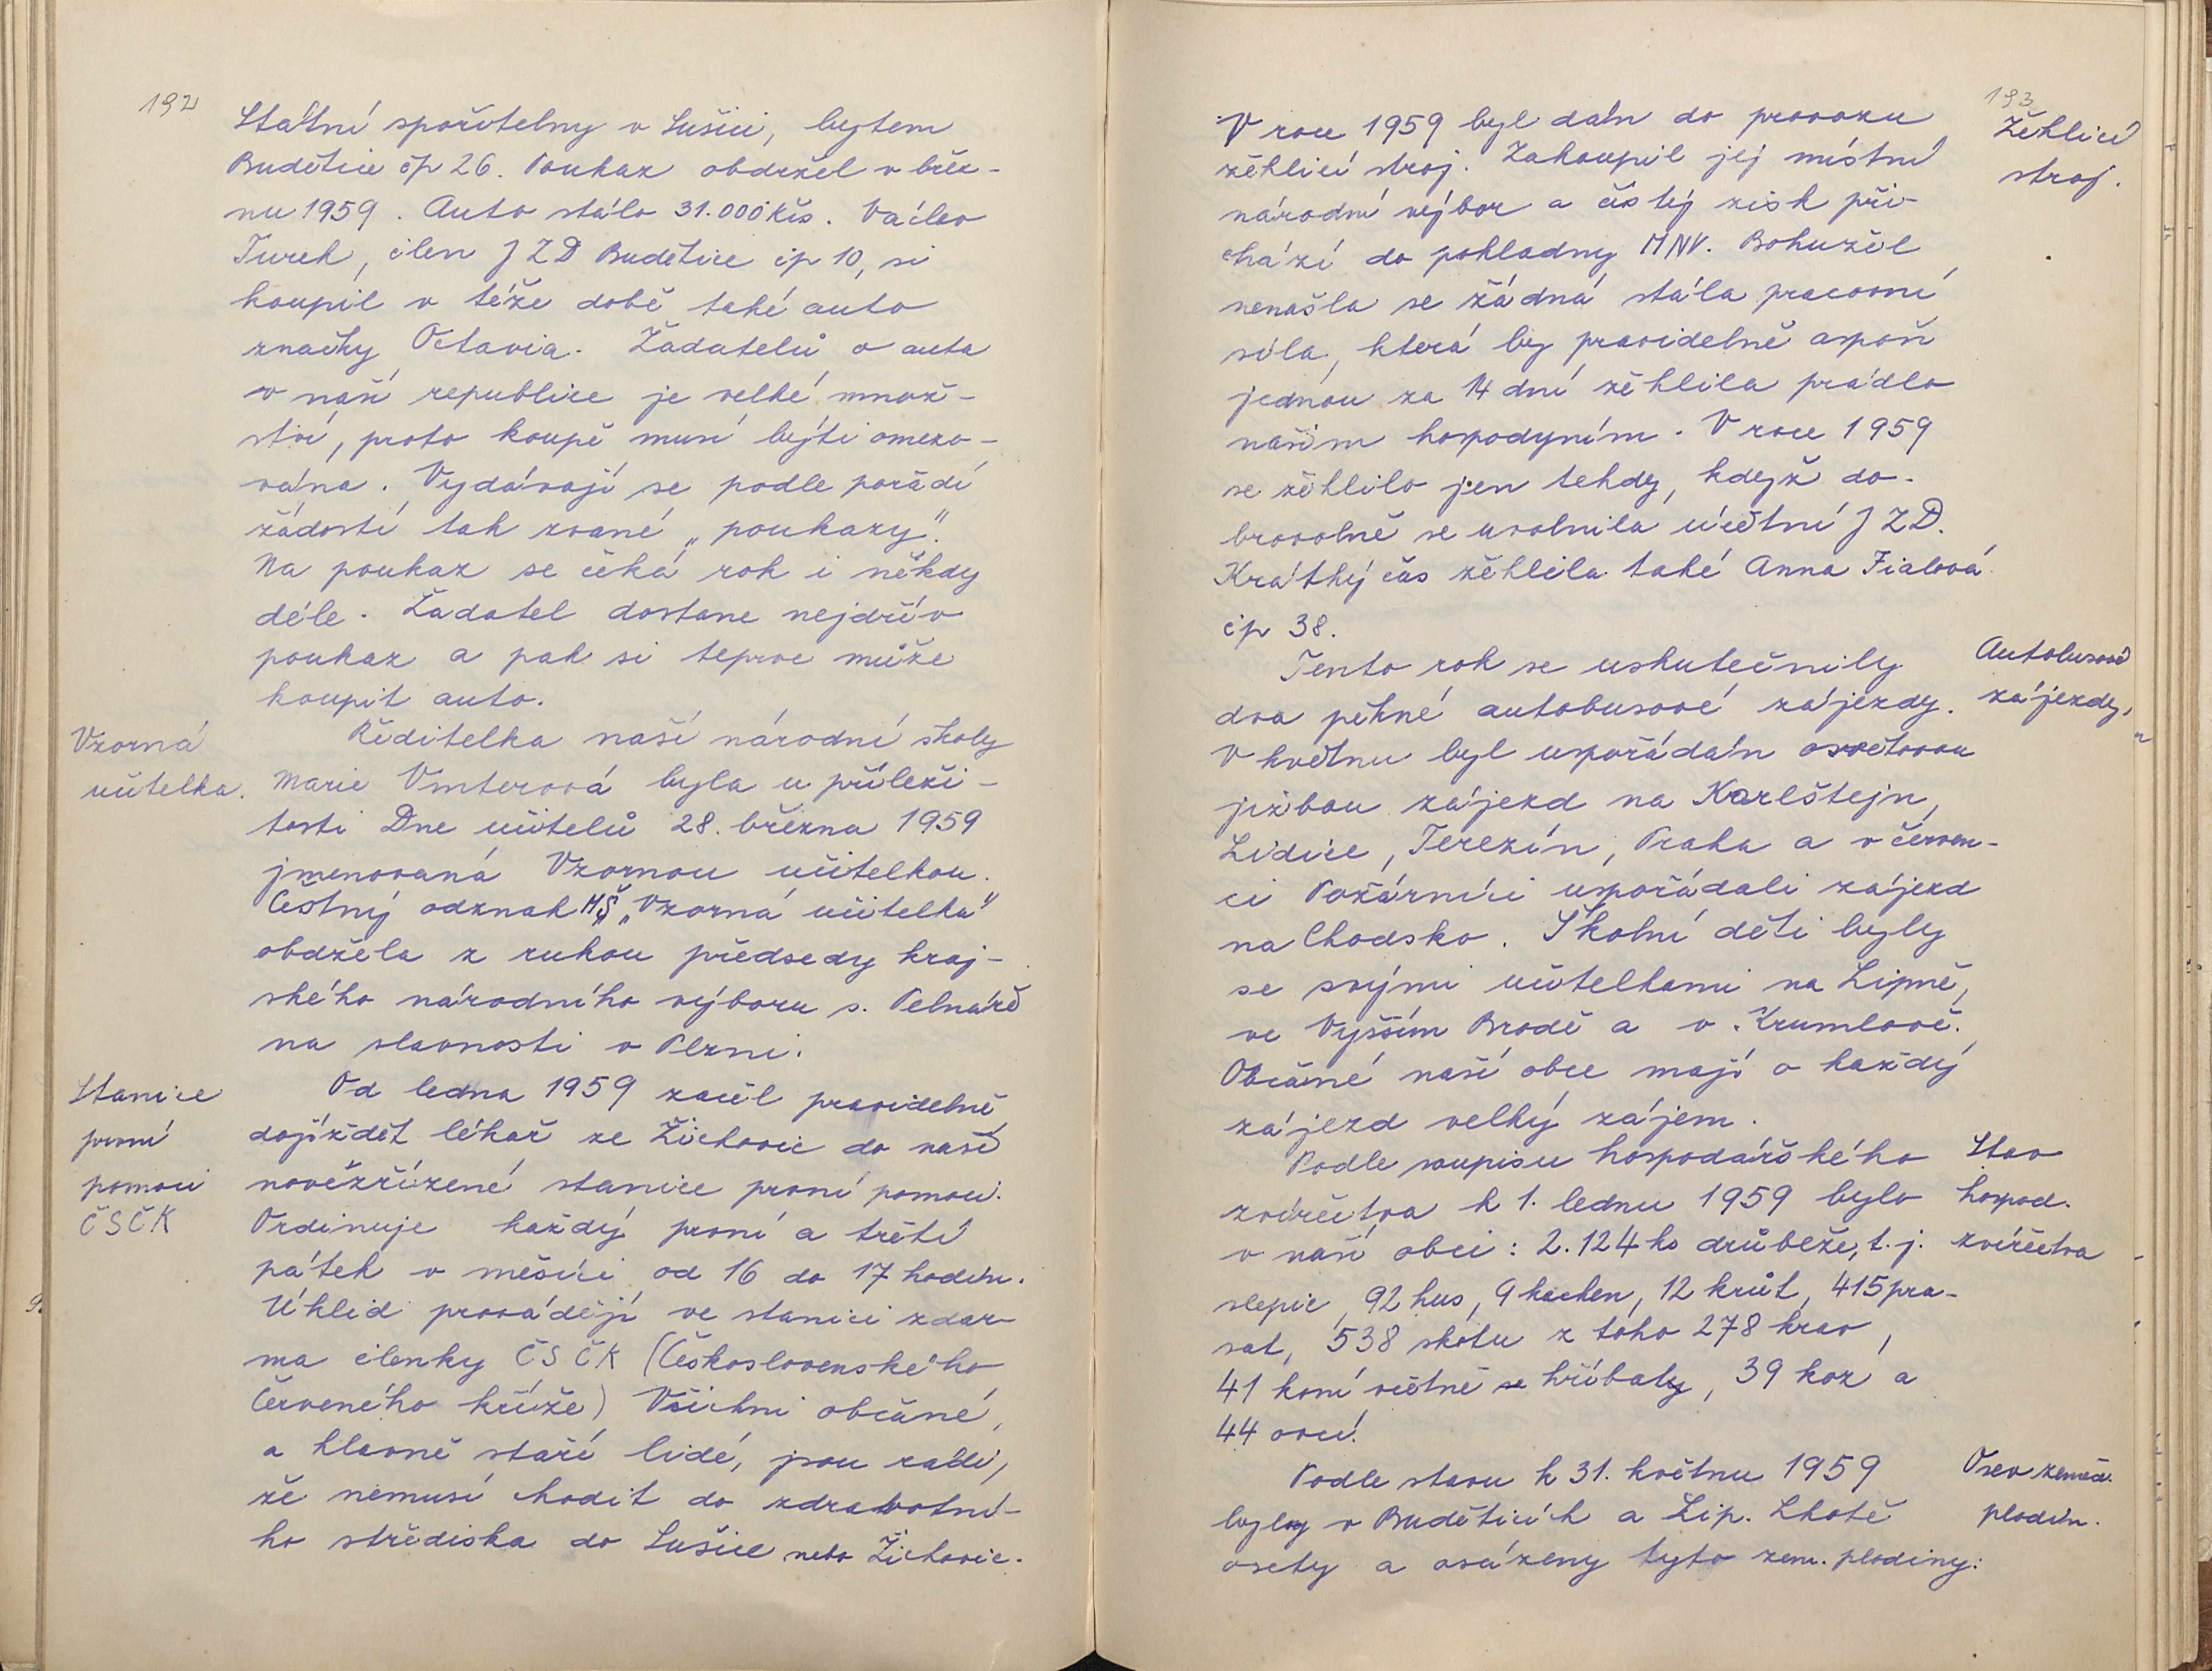 192
Státní spořitelny v Sušici, bytem
Budětice čp 26. Poukaz obdržel v břez-
nu 1959. Auto stálo 31.000 Kčs. Václav
Turek, člen JZD Budětice čp 10, si
koupil v téže době také auto
značky Octavia. Žadatelů o auta
v naší republice je velké množ-
ství, proto koupě musí býti omezo-
vána. Vydávají se podle pořadí
žádostí tak zvané „poukazy".
Na poukaz se čeká rok i někdy
déle. Žadatel dostane nejdřív
poukaz a pak si teprve může
koupit auto.
Vzorná
učitelka.
Ředitelka naší národní školy
Marie Vinterová byla u příleži-
tosti Dne učitelů 28. března 1959
jmenovaná Vzornou učitelkou.
Čestný odznak MŠ „Vzorná učitelka"
obdržela z rukou předsedy kraj-
ského národního výboru s. Pelnáře
na slavnosti v Plzni.
Stanice
první
pomoci
ČSČK
Od ledna 1959 začal pravidelně
dojíždět lékař ze Žichovic do naší
nověžřízené stanice první pomoci.
Ordinuje každý první a třetí
pátek v měsíci od 16 do 17 hodin.
Úklid provádějí ve stanici zdar-
ma členky ČSČK (Československého
Červeného kříže) Všichni občané,
a hlavně staří lidé, jsou rádi,
že nemusí chodit do zdravotní-
ho střediska do Sušice nebo Žichovic.
193
Žehlicí
stroj.
V roce 1959 byl dán do provozu
žehlicí stroj. Zakoupil jej místní
národní výbor a čistý zisk při-
chází do pokladny MNV. Bohužel
nenašla se žádná stála pracovní
síla, která by pravidelně aspoň
jednou za 14 dní žehlila prádlo
našim hospodyním. V roce 1959
se žehlilo jen tehdy, když do-
brovolně se uvolnila účetní JZD.
Krátký čas žehlila také Anna Fialová
čp 38.
Autobusové
zájezdy.
Tento rok se uskutečnily
dva pěkné autobusové zájezdy.
V květnu byl uspořádán osvětovou
jizbou zájezd na Karlštejn,
Lidice, Terezín, Praha a v červen-
ci Požárníci uspořádali zájezd
na Chodsko. Školní děti byly
se svými učitelkami na Lipně,
ve Vyšším Brodě a v Krumlově.
Občané naší obce mají o každý
zájezd velký zájem.
Stav
hospod.
zvířectva
Podle soupisu hospodářského
zvířectva k 1. lednu 1959 bylo
v naší obci: 2.124 ks drůbeže, t. j.
slepic, 92 hus, 9 kachen, 12 krůt, 415 pra-
sat, 538 skotu z toho 278 krav,
41 koní včetně se hříbaty, 39 koz a
44 ovcí.
Osev zeměd.
plodin.
Podle stavu k 31. květnu 1959
byly v Budětících a Lip. Lhotě
osety a osázeny tyto zem. plodiny: